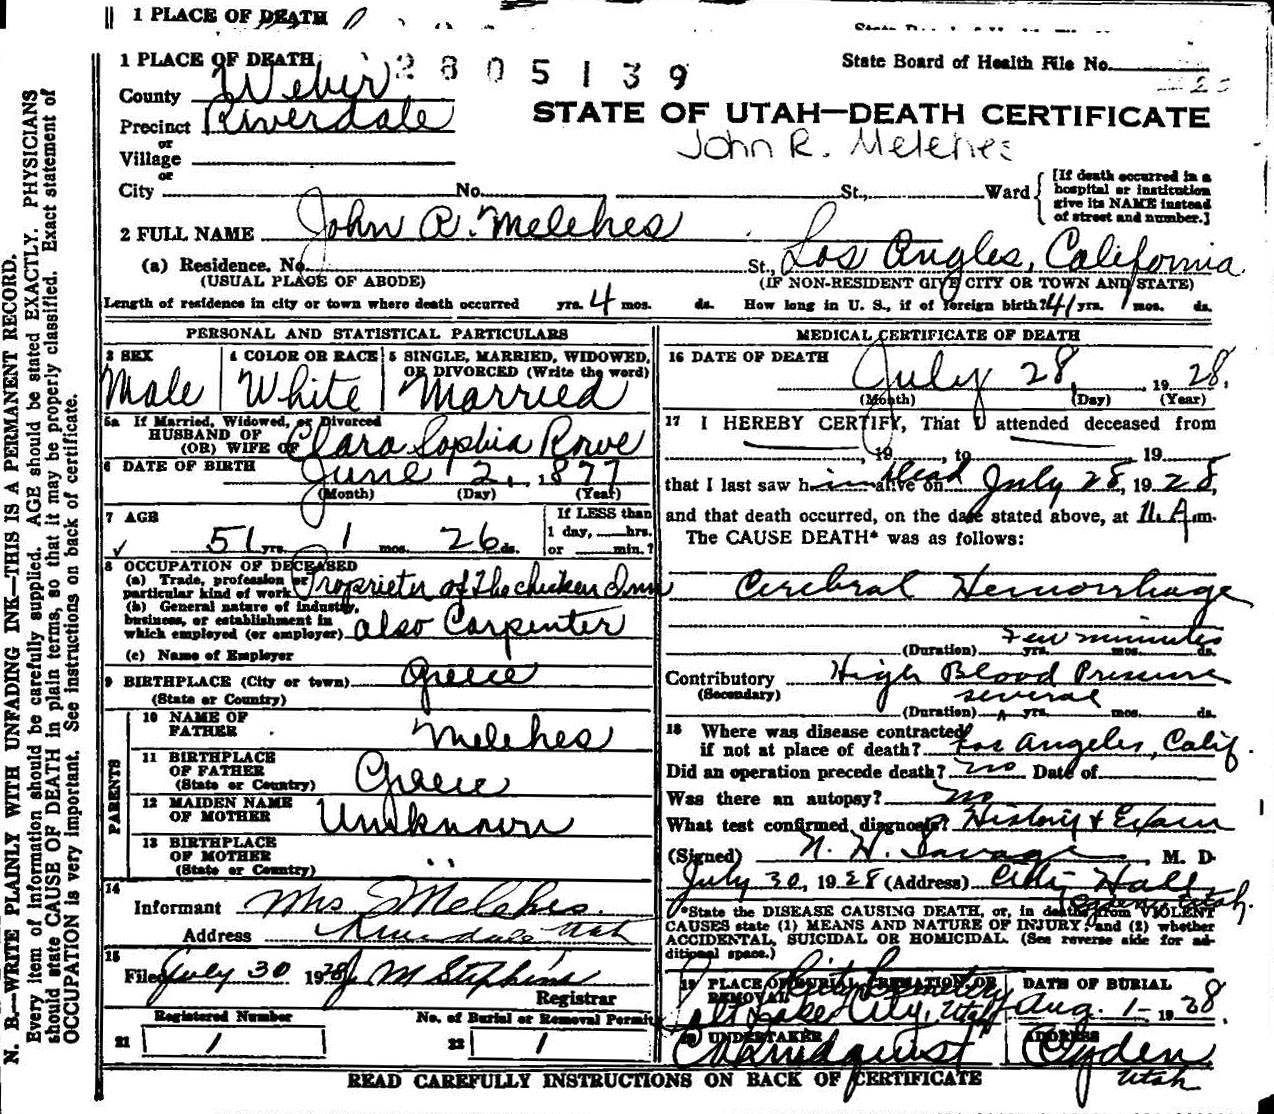 1 PLACE OF DEATH
1 PLACE OF DEATH 2805139 State Board of Health File No.
County Weber
STATE OF UTAH—DEATH CERTIFICATE
Precinct Riverdale
John R. Melehes
or
Village
or
City No. St., Ward
[If death occurred in a
hospital or institution
give its NAME instead
of street and number.]
2 FULL NAME John R. Melehes
(a) Residence. No. St., Los Angles, California
(USUAL PLACE OF ABODE) (IF NON-RESIDENT GIVE CITY OR TOWN AND STATE)
Length of residence in city or town where death occurred yrs. 4 mos. ds. How long in U. S., if of foreign birth? 41 yrs. 1 mos. ds.
PERSONAL AND STATISTICAL PARTICULARS
3 SEX 4 COLOR OR RACE 5 SINGLE, MARRIED, WIDOWED,
OR DIVORCED (Write the word)
Male White Married
5a If Married, Widowed, or Divorced
HUSBAND OF
(OR) WIFE OF Clara Sophia Rowe
6 DATE OF BIRTH June 2, 1877
(Month) (Day) (Year)
7 AGE If LESS than
1 day, hrs.
51 yrs. 1 mos. 26 ds. or min.?
8 OCCUPATION OF DECEASED
(a) Trade, profession or
particular kind of work Proprieter of The chicken Inn
(b) General nature of industry,
business, or establishment in
which employed (or employer) also Carpenter
(c) Name of Employer
9 BIRTHPLACE (City or town) Greece
(State or Country)
PARENTS
10 NAME OF
FATHER Melehes
11 BIRTHPLACE
OF FATHER
(State or Country) Greece
12 MAIDEN NAME
OF MOTHER Unknown
13 BIRTHPLACE
OF MOTHER
(State or Country) ..
14
Informant Mrs J Melehes.
Address Riverdale Utah
15
Filed July 30 1928 J M Stephins
Registrar
Registered Number No. of Burial or Removal Permit
21 1 22 1
MEDICAL CERTIFICATE OF DEATH
16 DATE OF DEATH July 28, 1928.
(Month) (Day) (Year)
17 I HEREBY CERTIFY, That I attended deceased from
, 19 , to 19
that I last saw him alive on dead July 28, 1928,
and that death occurred, on the date stated above, at 11 A.m.
The CAUSE DEATH* was as follows:
Cerebral Hemorrhage
few minutes
(Duration) yrs. mos. ds.
Contributory High Blood Pressure
(Secondary) several
(Duration) yrs. mos. ds.
18 Where was disease contracted
if not at place of death? Los Angeles, Calif.
Did an operation precede death? no Date of
Was there an autopsy? no
What test confirmed diagnosis? History & Exam
(Signed) N. H. Savage, M. D.
July 30, 1928 (Address) City Hall
Ogden, Utah.
*State the DISEASE CAUSING DEATH, or, in deaths from VIOLENT
CAUSES state (1) MEANS AND NATURE OF INJURY; and (2) whether
ACCIDENTAL, SUICIDAL OR HOMICIDAL. (See reverse side for ad-
ditional space.)
19 PLACE OF BURIAL, CREMATION OR
REMOVAL City Cemetery
Salt Lake City, Utah
DATE OF BURIAL
Aug. 1- 1928
20 UNDERTAKER Lindquist
ADDRESS
Ogden
Utah
READ CAREFULLY INSTRUCTIONS ON BACK OF CERTIFICATE
N. B.—WRITE PLAINLY WITH UNFADING INK—THIS IS A PERMANENT RECORD.
Every item of information should be carefully supplied. AGE should be stated EXACTLY. PHYSICIANS
should state CAUSE OF DEATH in plain terms, so that it may be properly classified. Exact statement of
OCCUPATION is very important. See instructions on back of certificate.